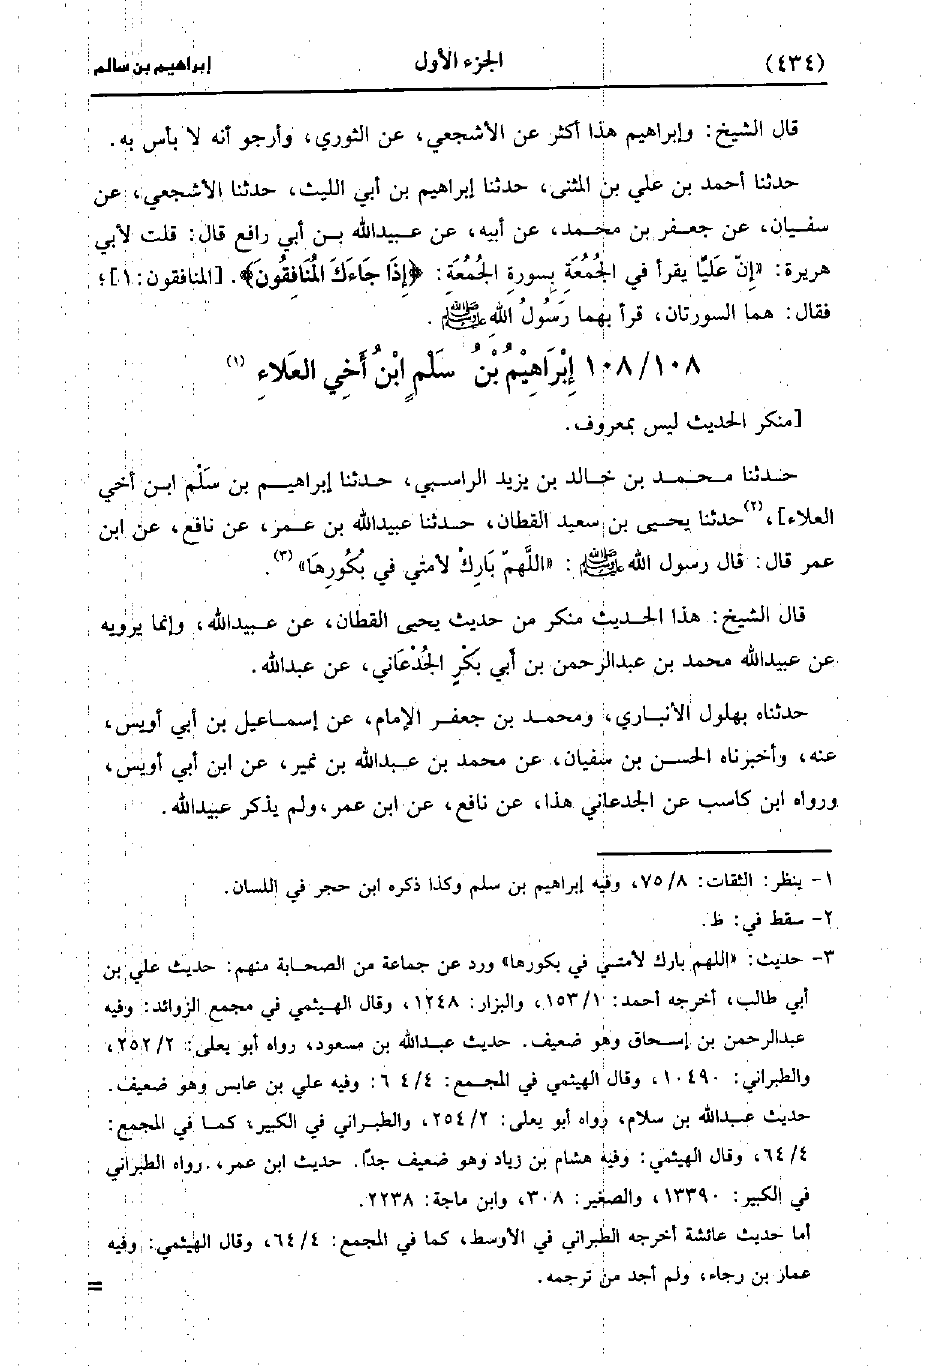 (٤٣٤) الجزء الأول إبراهيم بن سالم
قال الشيخ: وإبراهيم هذا أكثر عن الأشجعي، عن الثوري، وأرجو أنه لا بأس به.
حدثنا أحمد بن علي بن المثنى، حدثنا إبراهيم بن أبي الليث، حدثنا الأشجعي، عن
سفيان، عن جعفر بن محمد، عن أبيه، عن عبيدالله بن أبي رافع قال: قلت لأبي
هريرة: «إنّ عليًّا يقرأ في الجُمُعَةِ بِسورةِ الجُمُعَةِ: ﴿إِذَا جَاءَكَ المُنَافِقُونَ﴾. [المنافقون: ١]؛
فقال: هما السورتان، قرأ بهما رَسُولُ اللهِ ﷺ.
١٠٨/١٠٨ إِبْرَاهِيْمُ بْنُ سَلْمٍ ابْنُ أَخِي العَلاءِ (١)
[منكر الحديث ليس بمعروف.
حدثنا محمد بن خالد بن يزيد الراسبي، حدثنا إبراهيم بن سَلْم ابن أخي
العلاء]،(٢) حدثنا يحيى بن سعيد القطان، حدثنا عبيدالله بن عمر، عن نافع، عن ابن
عمر قال: قال رسول الله ﷺ: «اللَّهمّ بَارِكْ لأمتي في بُكُورِهَا»(٣).
قال الشيخ: هذا الحديث منكر من حديث يحيى القطان، عن عبيدالله، وإنما يرويه
عن عبيدالله محمد بن عبدالرحمن بن أبي بَكْرٍ الجُدْعَاني، عن عبدالله.
حدثناه بهلول الأنباري، ومحمد بن جعفر الإمام، عن إسماعيل بن أبي أويس،
عنه، وأخبرناه الحسن بن سفيان، عن محمد بن عبدالله بن نمير، عن ابن أبي أويس،
ورواه ابن كاسب عن الجدعاني هذا، عن نافع، عن ابن عمر، ولم يذكر عبيدالله.
١- ينظر: الثقات: ٧٥/٨، وفيه إبراهيم بن سلم وكذا ذكره ابن حجر في اللسان.
٢- سقط في: ظ.
٣- حديث: «اللهم بارك لأمتي في بكورها» ورد عن جماعة من الصحابة منهم: حديث علي بن
أبي طالب، أخرجه أحمد: ١٥٣/١، والبزار: ١٢٤٨، وقال الهيثمي في مجمع الزوائد: وفيه
عبدالرحمن بن إسحاق وهو ضعيف. حديث عبدالله بن مسعود، رواه أبو يعلى: ٢٥٢/٢،
والطبراني: ١٠٤٩٠، وقال الهيثمي في المجمع: ٦٤/٤: وفيه علي بن عابس وهو ضعيف.
حديث عبدالله بن سلام، رواه أبو يعلى: ٢٥٤/٢، والطبراني في الكبير، كما في المجمع:
٦٤/٤، وقال الهيثمي: وفيه هشام بن زياد وهو ضعيف جدًا. حديث ابن عمر، رواه الطبراني
في الكبير: ١٣٣٩٠، والصغير: ٣٠٨، وابن ماجة: ٢٢٣٨.
أما حديث عائشة أخرجه الطبراني في الأوسط، كما في المجمع: ٦٤/٤، وقال الهيثمي: وفيه
عمار بن رجاء، ولم أجد من ترجمه.
=